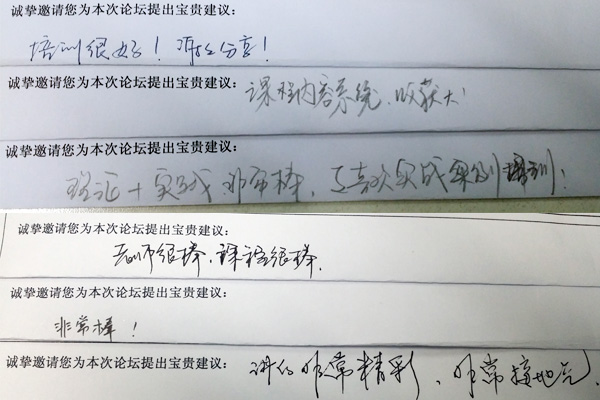 诚挚邀请您为本次论坛提出宝贵建议：
培训很好！分享！
诚挚邀请您为本次论坛提出宝贵建议：
课程内容系统，收获大
诚挚邀请您为本次论坛提出宝贵建议：
理论+实战 非常棒，喜欢实战案例培训！
诚挚邀请您为本次论坛提出宝贵建议：
老师很棒，课程很棒．
诚挚邀请您为本次论坛提出宝贵建议：
非常棒！
诚挚邀请您为本次论坛提出宝贵建议：
讲的非常精彩、非常接地气．